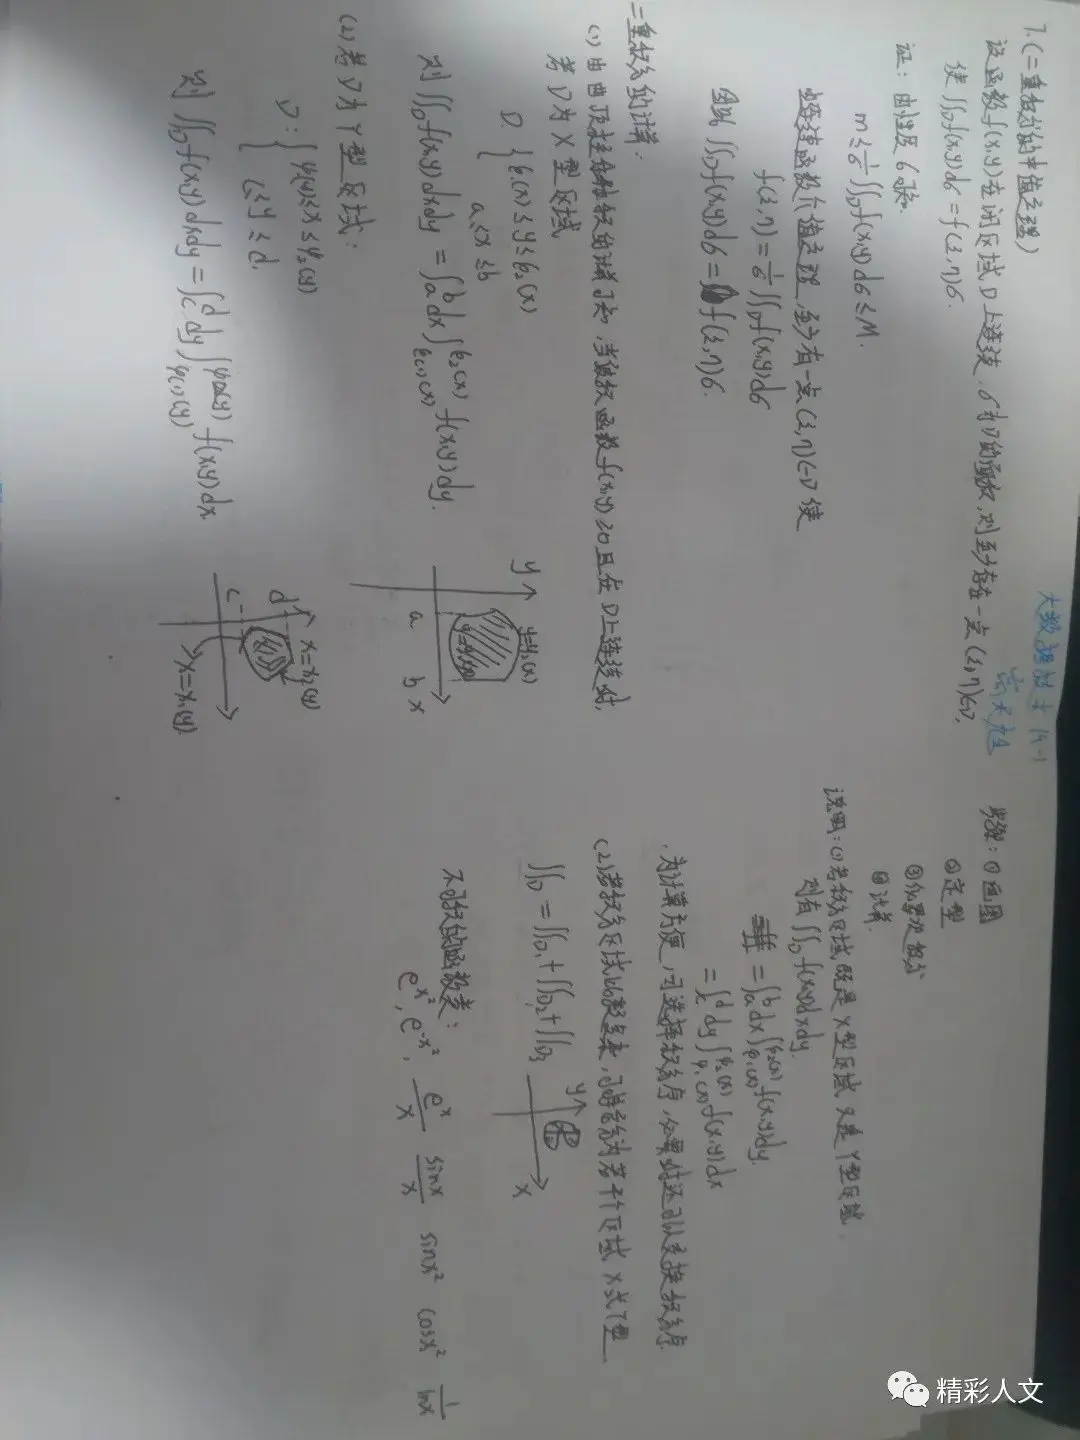 大数据技术19-1
7.(二重积分的中值定理)
设函数f(x,y)在闭区域D上连续,σ为D的面积,则至少存在一点(ξ,η)∈D,
使∬_D f(x,y)dσ=f(ξ,η)σ.
证:由性质6可知.
m≤1/σ∬_D f(x,y)dσ≤M.
由连续函数介值定理,至少有一点(ξ,η)∈D使
f(ξ,η)=1/σ∬_D f(x,y)dσ
因此∬_D f(x,y)dσ=f(ξ,η)σ.
二重积分的计算.
(1)由曲顶柱体体积的计算可知,当被积函数f(x,y)≥0且在D上连续时,
若D为X型区域
D:{φ₁(x)≤y≤φ₂(x)
a≤x≤b
则∬_D f(x,y)dxdy=∫_a^b dx∫_{φ₁(x)}^{φ₂(x)} f(x,y)dy.
y
y=φ₂(x)
a b x
(2)若D为Y型区域:
D:{ψ₁(y)≤x≤ψ₂(y)
c≤y≤d.
则∬_D f(x,y)dxdy=∫_c^d dy∫_{ψ₁(y)}^{ψ₂(y)} f(x,y)dx
d
x=x₂(y)
c
x=x₁(y)
步骤:①画图
②定型
③化累次积分
④计算.
说明:(1)若积分区域既是X型区域又是Y型区域.
则有∬_D f(x,y)dxdy.
=∫_a^b dx∫_{φ₁(x)}^{φ₂(x)} f(x,y)dy.
=∫_c^d dy∫_{ψ₁(x)}^{ψ₂(x)} f(x,y)dx
为计算方便,可选择积分序,必要时还可以交换积分序.
(2)若积分区域比较复杂,可将它分为若干个区域X或Y型
∬_D=∬_{D₁}+∬_{D₂}+∬_{D₃}
y
x
不可积的函数类:
e^{x²}, e^{-x²}, e^x/x sinx/x sinx² cosx² 1/lnx
精彩人文